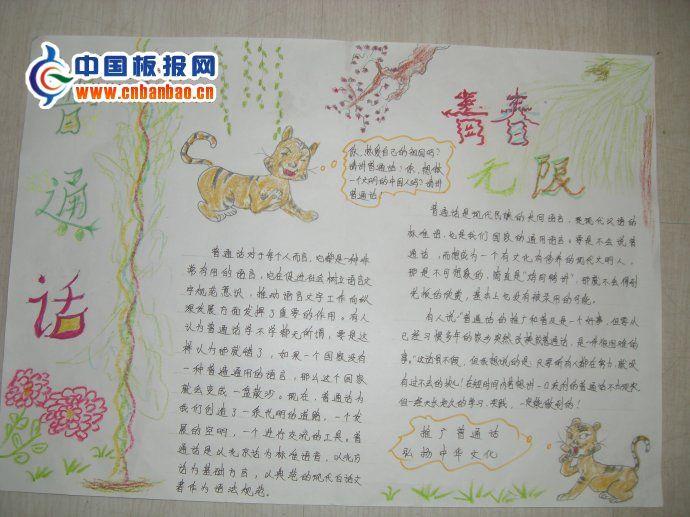 中国板报网
www.cnbanbao.cn
普
通
话
你,热爱自己的祖国吗?
请讲普通话!你,想做
一个文明的中国人吗?请讲
普通话
青春
无限
普通话对于每个人而言,它都是一种非
常有用的语言,它在促进社会树立语言文
字规范意识,推动语言文字工作向纵
深发展方面发挥了重要的作用。有人
认为普通话学不学都无所谓,要是这
样认为那就错了,如果一个国家没有
一种普通通用的语言,那么这个国家
就会变成一盘散沙。现在,普通话为
我们创造了一条光明的道路,一个发
展的空间,一个进行交流的工具。普
通话是以北京话为标准语音,以北方
话为基础方言,以典范的现代白话文
著作为语法规范。
普通话是现代民族的共同语言,是现代汉语的
标准语,也是我们国家的通用语言。要是不会说普
通话,而想成为一个有文化有修养的现代文明人,
那是不可想象的,简直是
那就不会得到
老板的欣赏,基本上也没有被录用的可能。
有人说"普通话的推广和普及是一个好事,但要从
已经习惯多年的家乡突然改换成普通话,是一件很困难的
事。"这话有不假,但我想说的是,只要所有人都在努力,就没
有过不去的坎儿!在短时间内要能讲一口流利的普通话不为现实
但一旦天长地久的学习、实践,一定能做到的!
推广普通话
弘扬中华文化